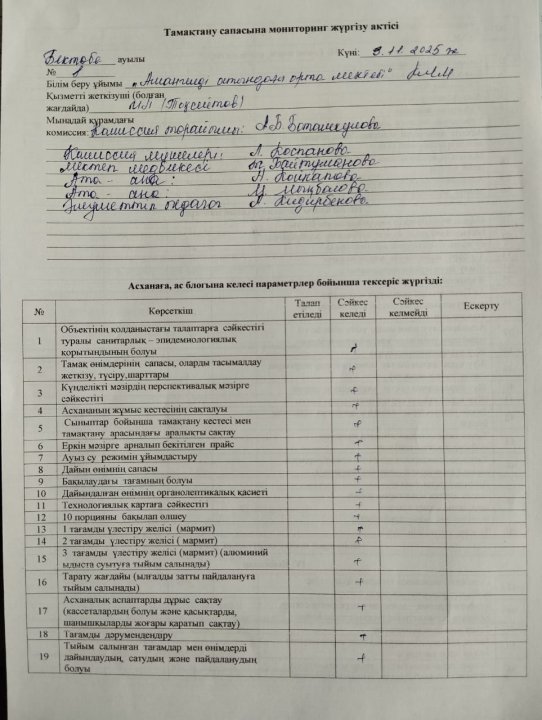 Тамақтану сапасына мониторинг жүргізу актісі
Бектөбе ауылы Күні: 3.11.2025 ж
№ 1
Білім беру ұйымы атындағы орта мектебі" КММ
Қызметті жеткізуші (болған
жағдайда) ИП (Тоқсейтов)
Мынадай құрамдағы
комиссия: Комиссия төрайымы: А.Б. Боташкулова
Комиссия мүшелері: Л. Коспанова
Мектеп медбикесі Байтуменова
Ата - ана:
Ата - ана:
Әлеуметтік педагог
Асханаға, ас блогына келесі параметрлер бойынша тексеріс жүргізді:
№ Көрсеткіш Талап етіледі Сәйкес келеді Сәйкес келмейді Ескерту
1 Объектінің қолданыстағы талаптарға сәйкестігі
туралы санитарлық – эпидемиологиялық
қорытындының болуы +
2 Тамақ өнімдерінің сапасы, оларды тасымалдау
жеткізу, түсіру,шарттары +
3 Күнделікті мәзірдің перспективалық мәзірге
сәйкестігі +
4 Асхананың жұмыс кестесінің сақталуы +
5 Сыныптар бойынша тамақтану кестесі мен
тамақтану арасындағы аралықты сақтау +
6 Еркін мәзірге арналып бекітілген прайс +
7 Ауыз су режимін ұйымдастыру +
8 Дайын өнімнің сапасы +
9 Бақылаудағы тағамның болуы +
10 Дайындалған өнімнің органолептикалық қасиеті +
11 Технологиялық картаға сәйкестігі +
12 10 порцияны бақылап өлшеу +
13 1 тағамды үлестіру желісі (мармит) +
14 2 тағамды үлестіру желісі ( мармит) +
15 3 тағамды үлестіру желісі (мармит) (алюминий
ыдыста суытуға тыйым салынады) +
16 Тарату жағдайы (ылғалды затты пайдалануға
тыйым салынады) +
17 Асханалық аспаптарды дұрыс сақтау
(кассеталардың болуы және қасықтарды,
шанышқыларды жоғары қаратып сақтау) +
18 Тағамды дәрумендендіру +
19 Тыйым салынған тағамдар мен өнімдерді
дайындаудың, сатудың және пайдаланудың
болуы +